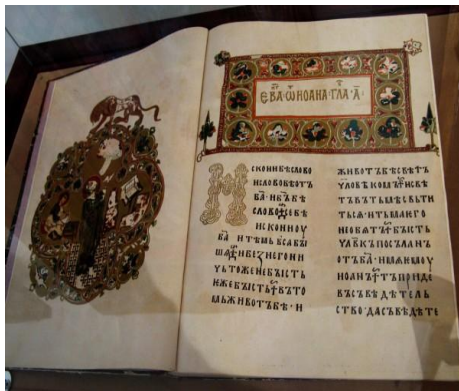 ЄВА҃ ѾИОАНА · ГЛА҃ · А҃ ·
ИСКОНИБѢСЛОВО
ИСЛОВОБѢОТЪ
Б҃А · ИБ҃ЪБѢ
СЛОВО · СЕБѢ
ИСКОНИОУ
Б҃А · ИТѢМЬВЬСѦБЫ
ШѦ · ИБЕЖНЕГОНИ
ЧЬТОЖЕНЕБЫСТЬ ·
ѤЖЕБЫСТЬ · ВЪТО
МЬЖИВОТЪБѢ · И
ЖИВОТЪБѢСВѢТЪ
ЧЛОВѢКОМЪ · ИСВѢ
ТЪВЪТЬМѢСВЬТИ
ТЬСѦ · ИТЬМАѤГО
НЕОБѦТЪ · БЫСТЬ
ЧЛВ҃КЪПОСЪЛАНЪ
ОТЪБ҃А · ИМѦѤМОУ
ИОАНЪ · ТЪПРИДЕ
ВЪСЪВѢДѢТЕЛЬ
СТВО · ДАСЪВѢДѢТЕ